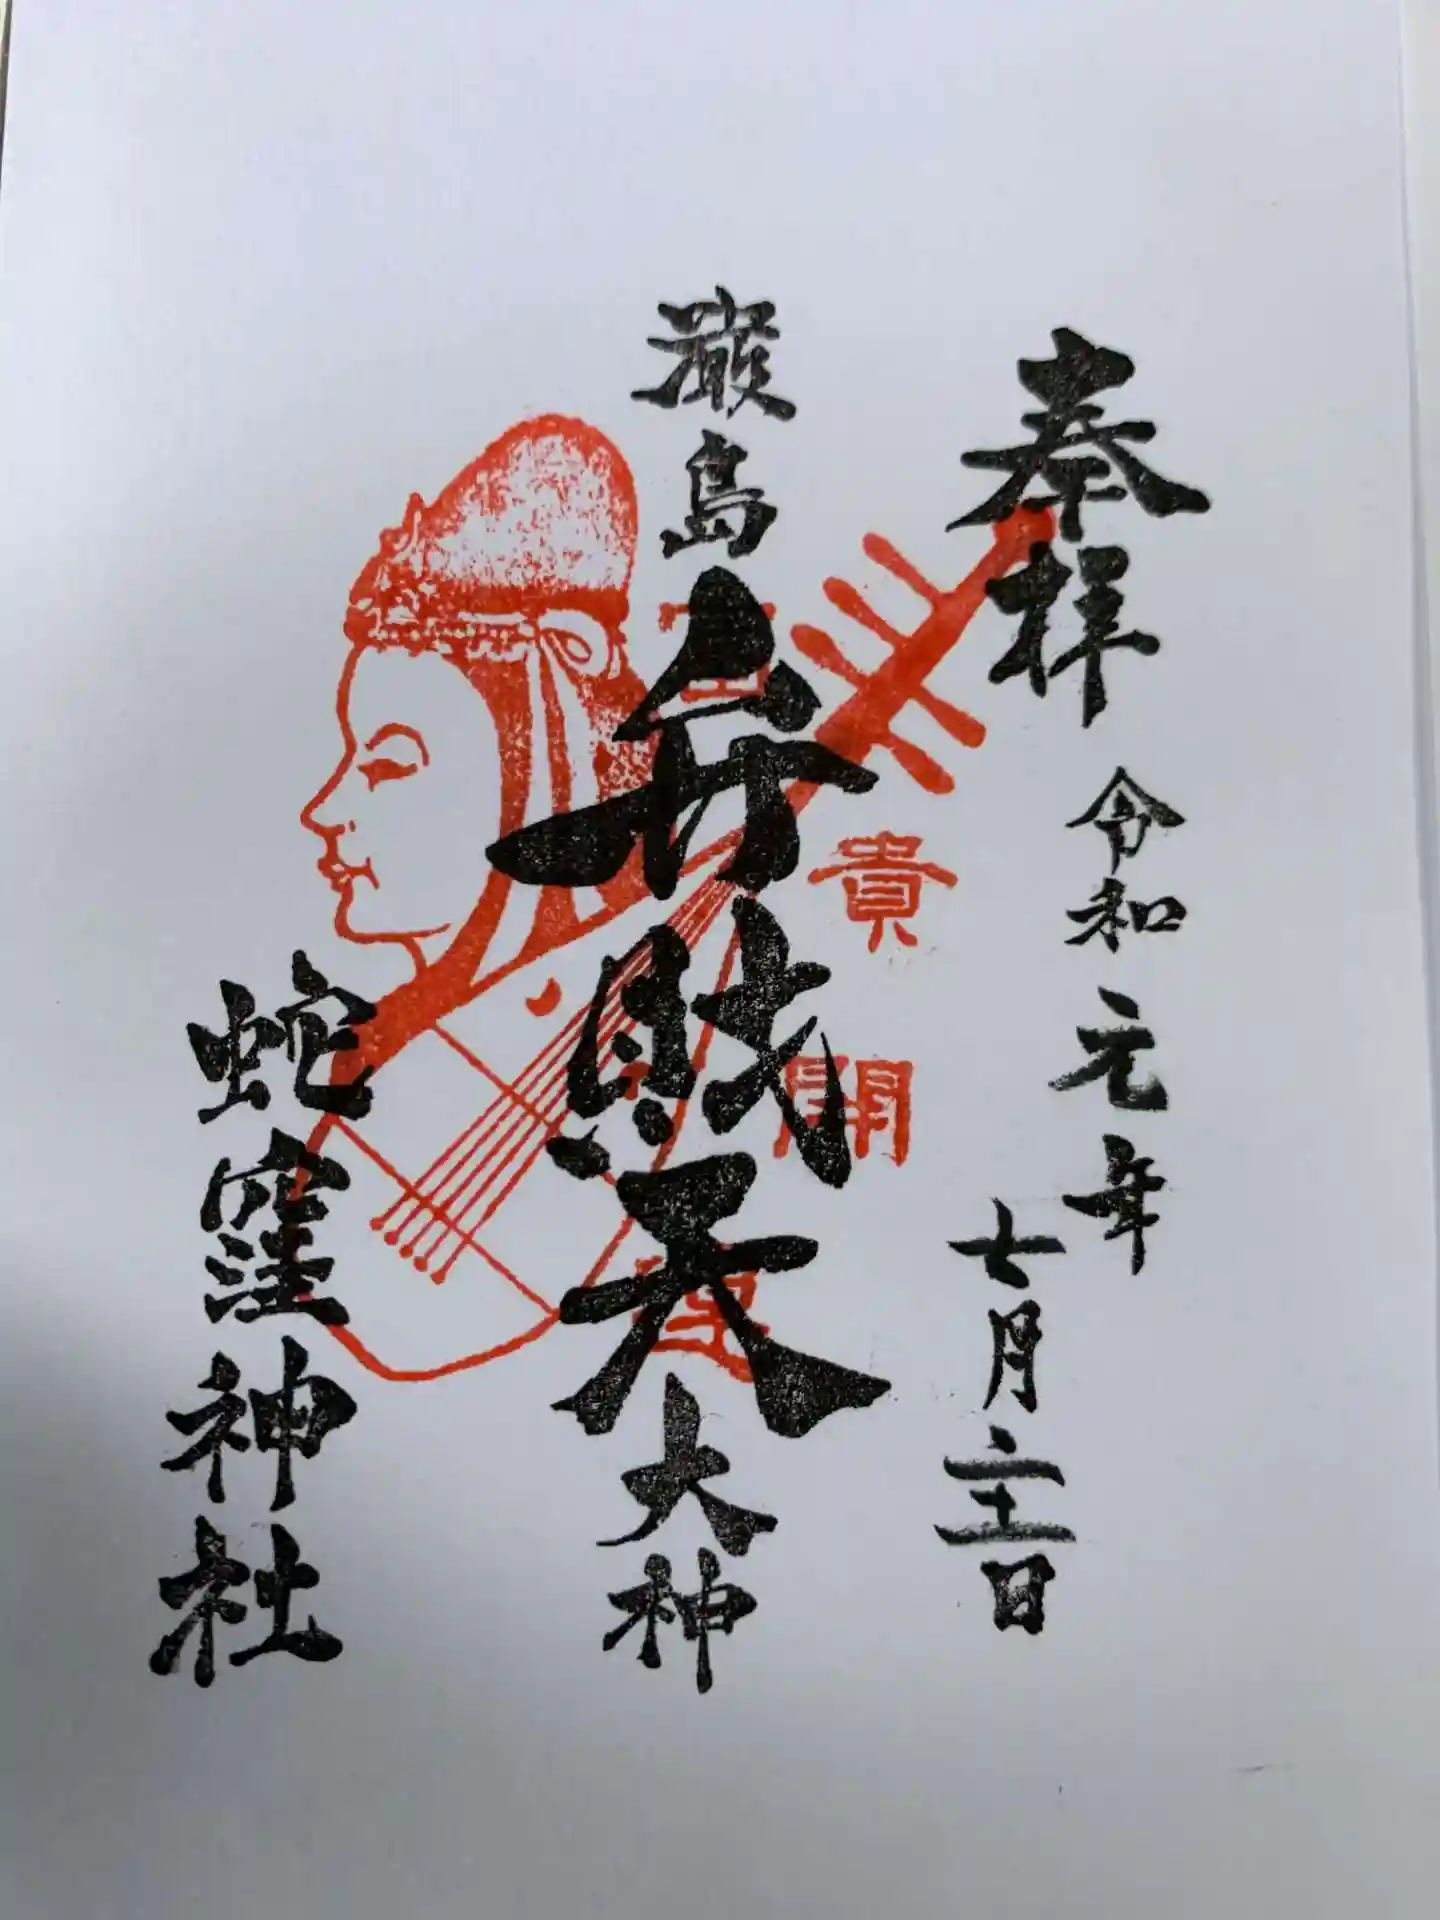 奉拝
令和元年
七月二十一日
厳島弁財天大神
貴
開
運
蛇窪神社